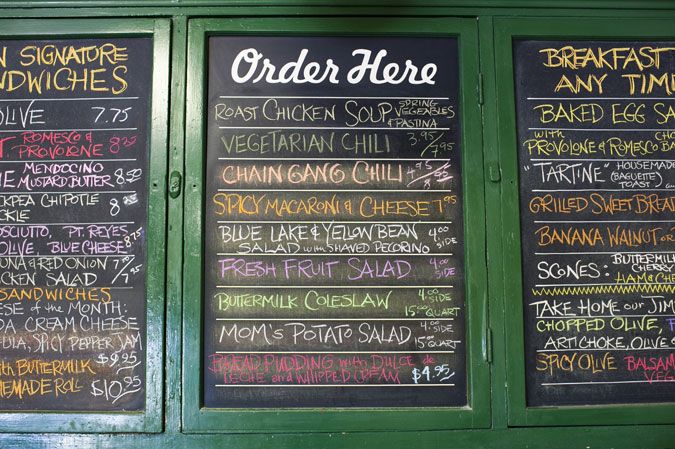 N SIGNATURE
NDWICHES
OLIVE 7.75
ROMESCO &
PROVOLONE 8.25
MENDOCINO
MUSTARD, BUTTER 8.50
KPEA CHIPOTLE
KLE 8
OSCIUTTO, PT. REYES
OLIVE, BLUE CHEESE 8.75
UNA & RED ONION
CKEN SALAD
SANDWICHES
EESE OF THE MONTH:
DA CREAM CHEESE
ULA, SPICY PEPPER JAM
TH BUTTERMILK $9.95
MEMADE ROLL $10.95
Order Here
ROAST CHICKEN SOUP SPRING
VEGETABLES
& PASTINA
VEGETARIAN CHILI 3.95/7.95
CHAIN GANG CHILI 4.95/8.95
SPICY MACARONI & CHEESE 7.95
BLUE LAKE & YELLOW BEAN 4.00
SALAD WITH SHAVED PECORINO SIDE
FRESH FRUIT SALAD 4.00
SIDE
BUTTERMILK COLESLAW 4.00 SIDE
15.00 QUART
MOM'S POTATO SALAD 4.00 SIDE
15.00 QUART
BREAD PUDDING WITH DULCE de
LECHE AND WHIPPED CREAM $4.95
BREAKFAST
ANY TIM
BAKED EGG SA
WITH CHO
PROVOLONE & ROMESCO BA
"TARTINE" HOUSEMADE
(BAGUETTE
TOAST)
GRILLED SWEET BREAD
BANANA WALNUT OR
SCONES: BUTTERMILK
CHERRY
HAM & CHE
TAKE HOME OUR JIM
CHOPPED OLIVE,
ARTICHOKE, OLIVE S
SPICY OLIVE BALSAM
VEG